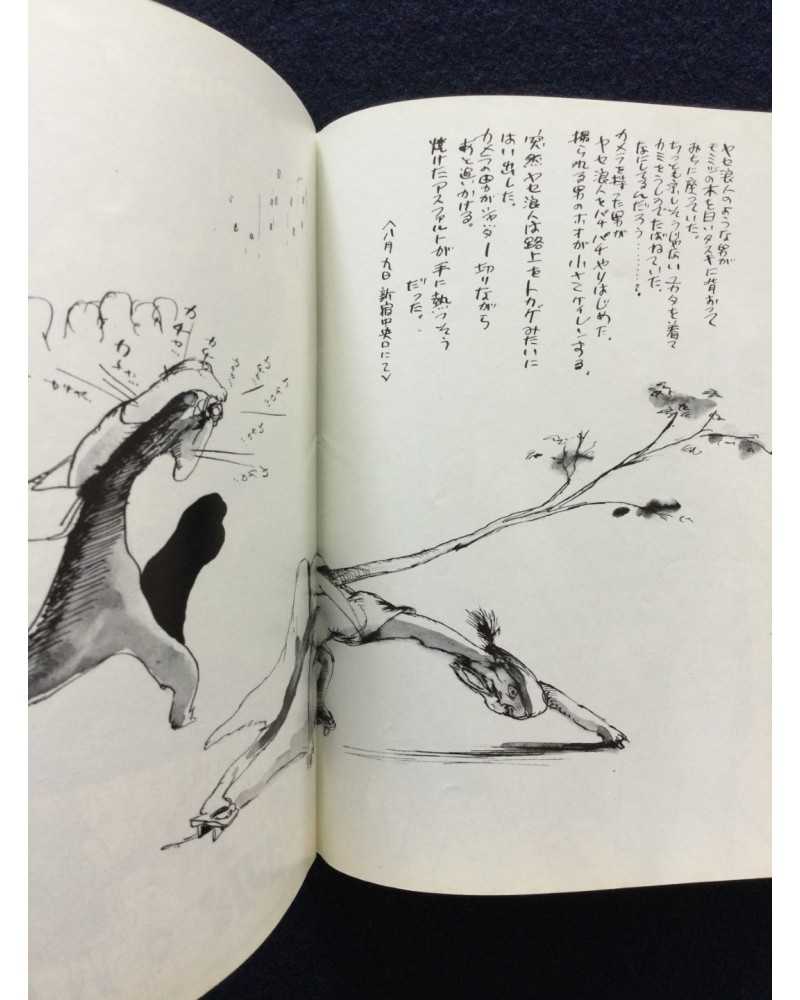 ヤセ浪人のような男が
モミヅの木を白いタスキに背おって
みちに座っていた。
ちっとも涼しそうじゃないユカタを着て
カミをうしろでたばねていた。
なにしてるんだろう………?
カメラを持った男が
ヤセ浪人をパチパチやりはじめた。
撮られる男のホオが小さくケイレンする。
突然ヤセ浪人は路上をトカゲみたいに
はい出した。
カメラの男がシャッター切りながら
あと追いかける。
焼けたアスファルトが手に熱つそう
だった。
〈八月九日 新宿中央口にて〉